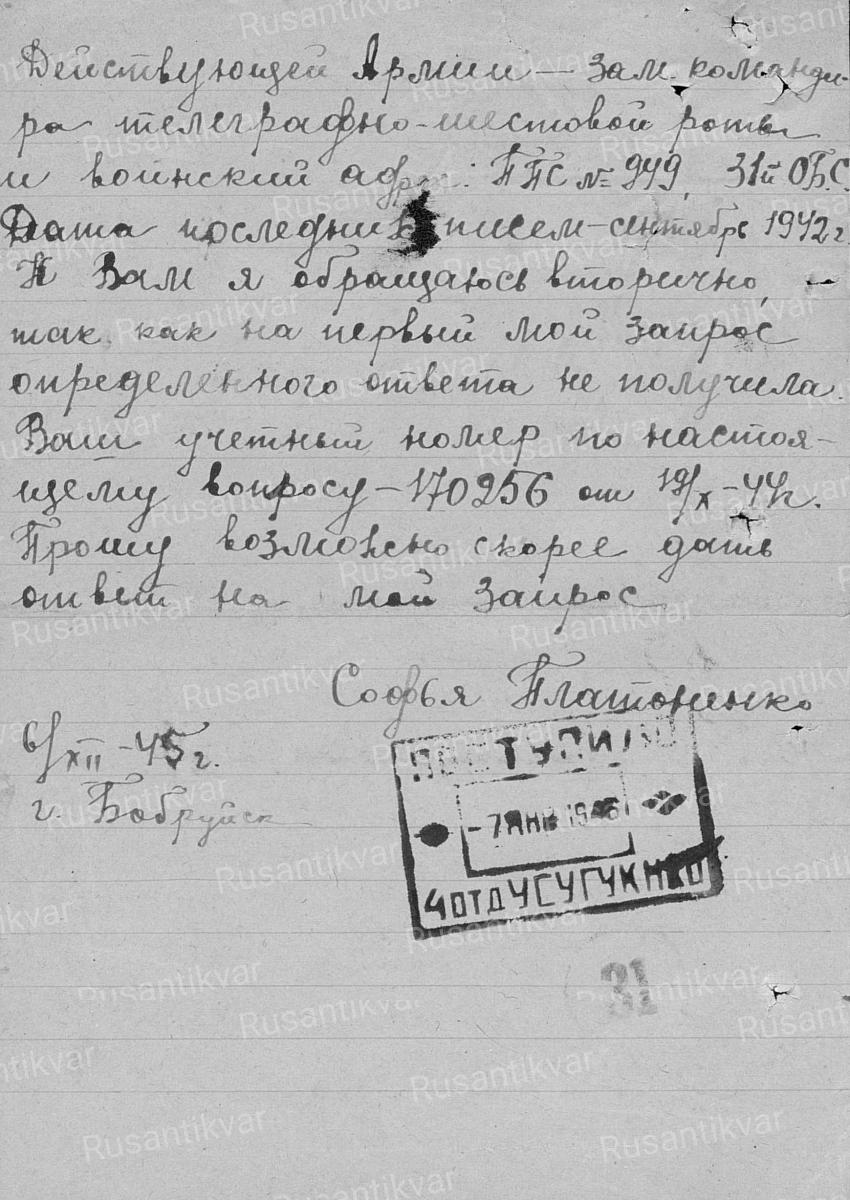 Действующей Армии — зам. команди-
ра телеграфно-шестовой роты
и воинский адрес: ППС № 949, 31й ОБ.С.
Дата последних писем — сентябрь 1942 г.
К Вам я обращаюсь вторично,
так как на первый мой запрос
определенного ответа не получила.
Ваш учетный номер по настоя-
щему вопросу — 170256 от 19/X – 44 г.
Прошу возможно скорее дать
ответ на мой запрос
Софья Платоненко
6/XII – 45 г.
г. Бобруйск
ПОСТУПИЛО
- 7 ЯНВ 1946
4 ОТД УСУ ГУК НКО
31
Rusantikvar